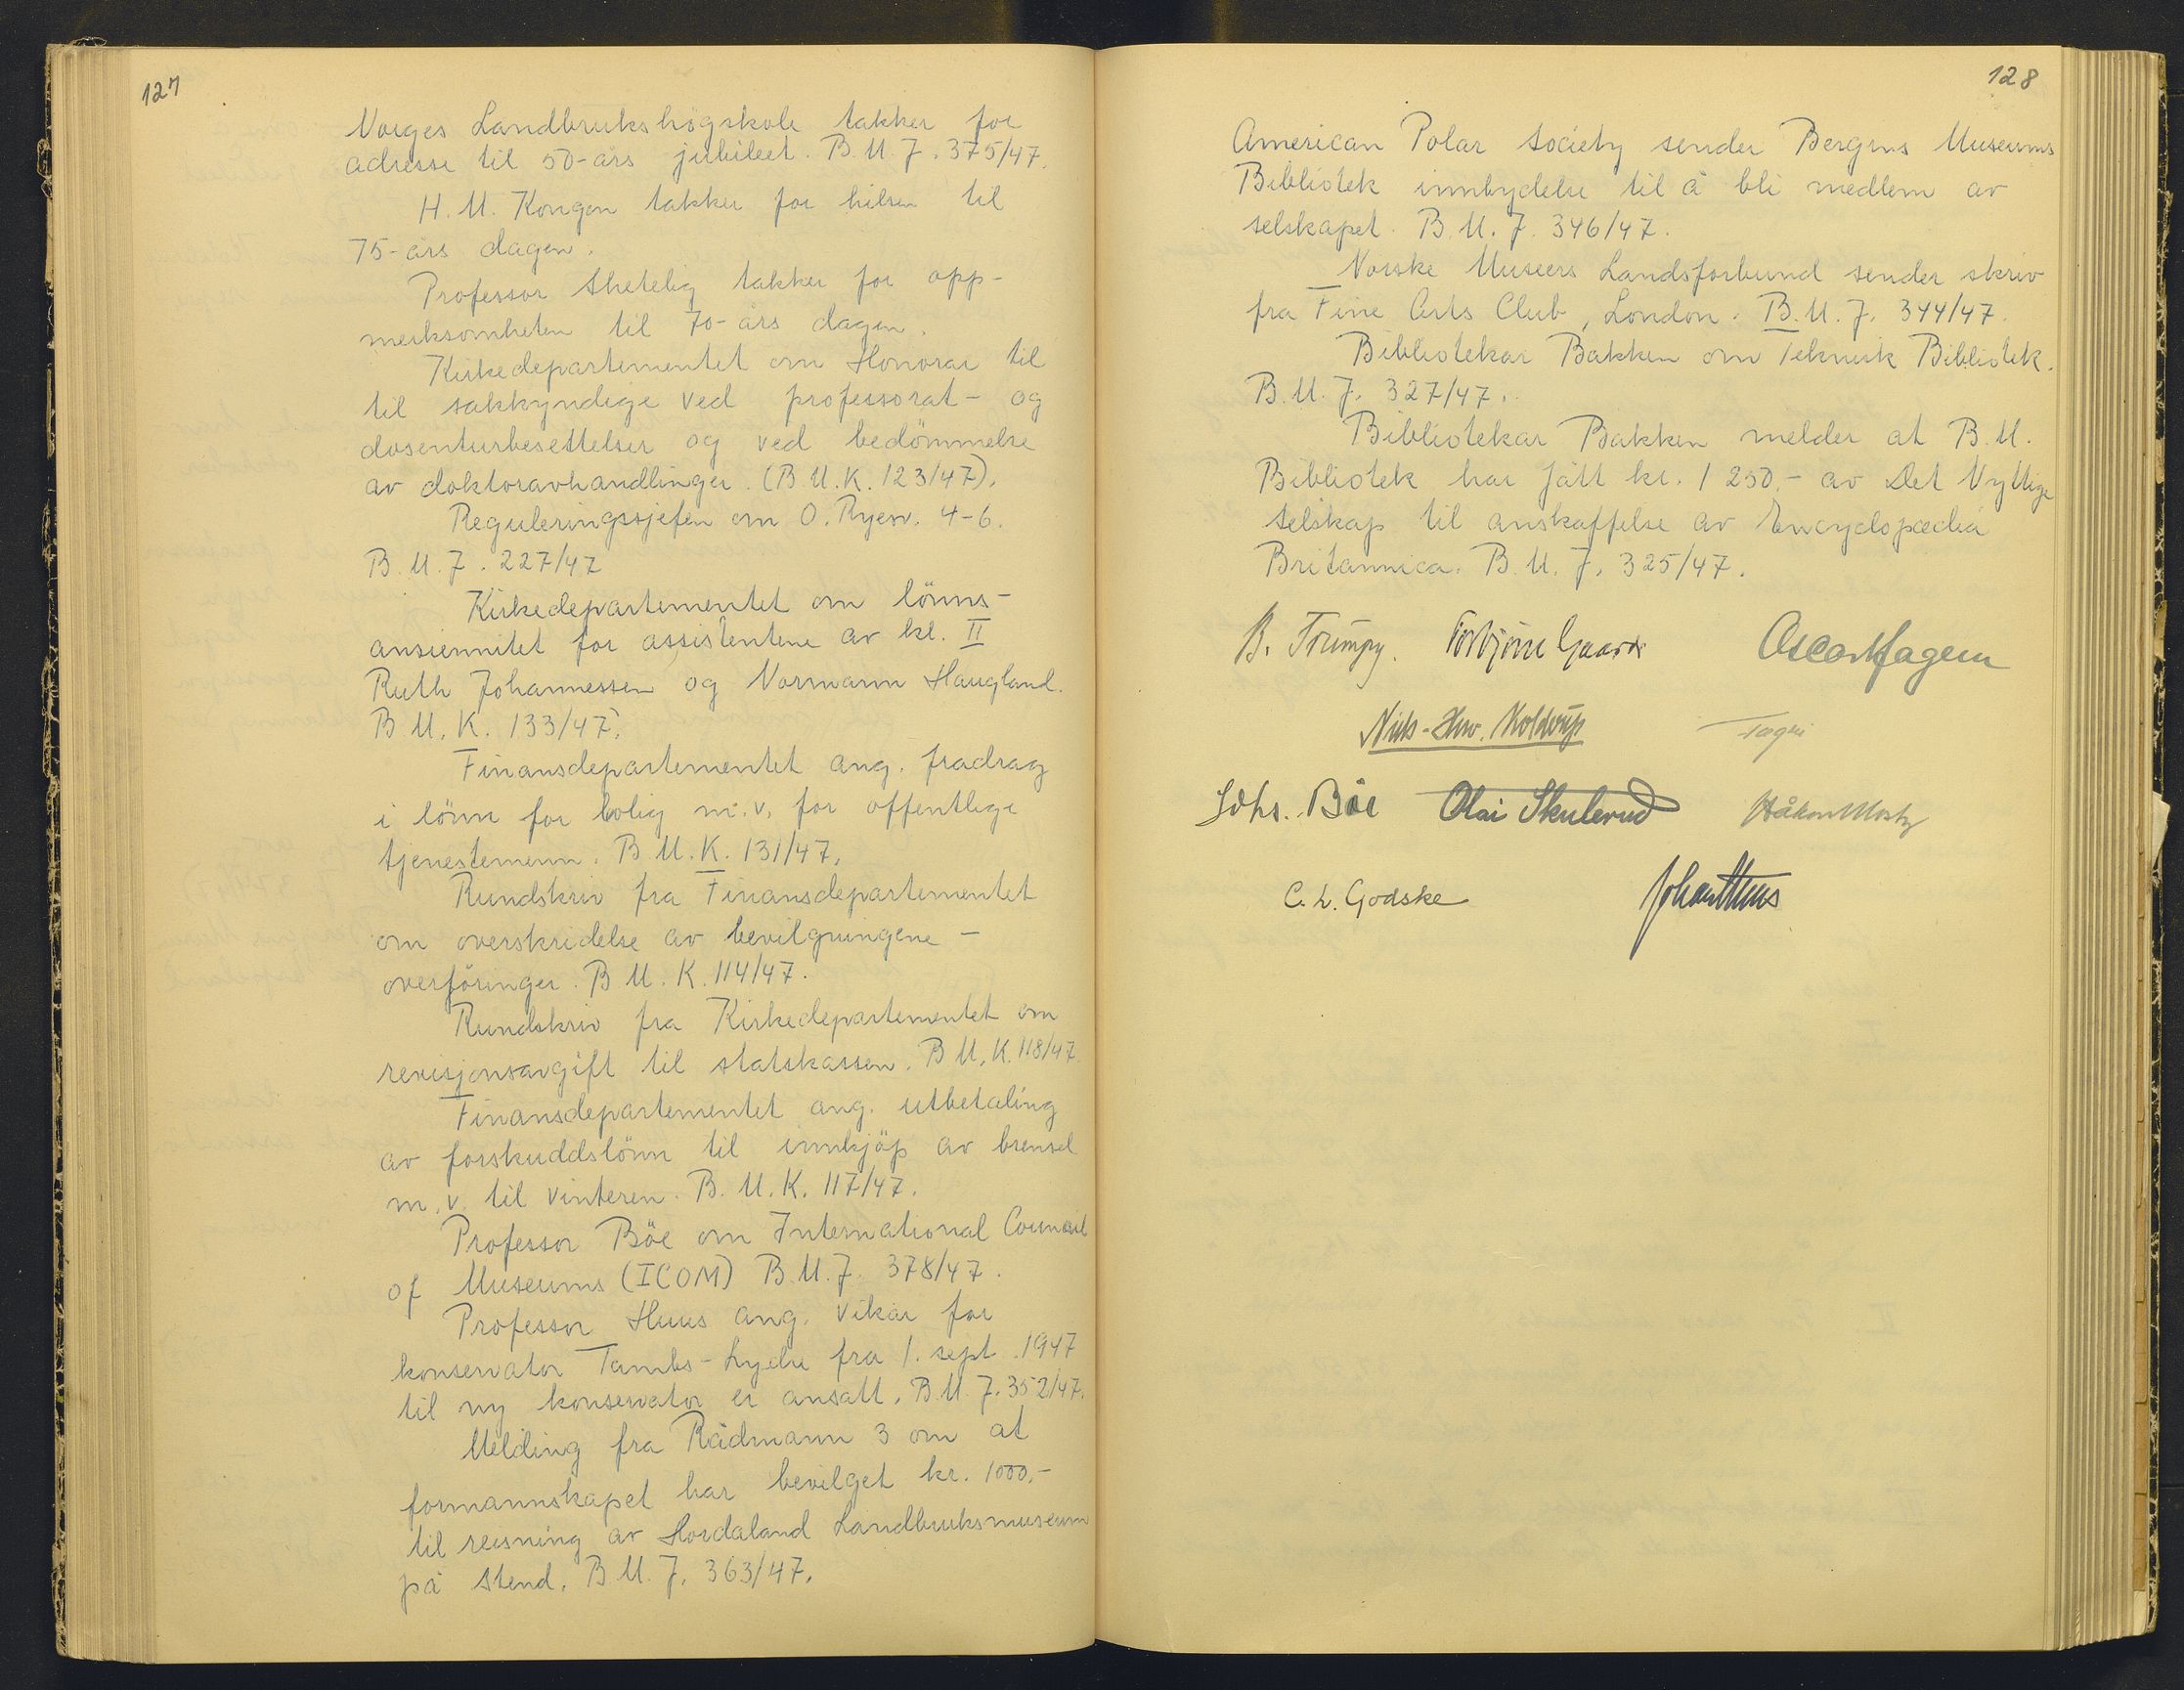 127
Norges Landbrukshögskole takker for
adresse til 50-års jubileet. B.M.J. 375/47.
H. M. Kongen takker for hilsen til
75-års dagen.
Professor Shetelig takker for opp-
merksomheten til 70-års dagen.
Kirkedepartementet om Honorar til
til sakkyndige ved professorat- og
dosenturbesettelser og ved bedömmelse
av doktoravhandlinger. (B.M.K. 123/47).
Reguleringssjefen om O. Ryesv. 4-6.
B.M.J. 227/47
Kirkedepartementet om lönns-
ansiennitet for assistentene av kl. II
Ruth Johannessen og Normann Haugland.
B.M.K. 133/47.
Finansdepartementet ang. fradrag
i lönn for bolig m.v. for offentlige
tjenestemenn. B.M.K. 131/47.
Rundskriv fra Finansdepartementet
om overskridelse av bevilgningene -
overföringer. B.M.K. 114/47.
Rundskriv fra Kirkedepartementet om
revisjonsavgift til statskassen. B.M.K. 118/47.
Finansdepartementet ang. utbetaling
av forskuddslönn til innkjöp av brensel
m.v. til vinteren. B.M.K. 117/47.
Professor Böe om International Council
of Museums (ICOM) B.M.J. 378/47.
Professor Huus ang. vikar for
konservator Tambs-Lyche fra 1. sept. 1947
til ny konservator er ansatt. B.M.J. 352/47.
Melding fra Rådmann 3 om at
formannskapet har bevilget kr. 1000.-
til reisning av Hordaland Landbruksmuseum
på Stend. B.M.J. 363/47.
128
American Polar Society sender Bergens Museums
Bibliotek innbydelse til å bli medlem av
selskapet. B.M.J. 346/47.
Norske Museers Landsforbund sender skriv
fra Fine Arts Club, London. B.M.J. 344/47.
Bibliotekar Bakken om Teknisk Bibliotek.
B.M.J. 327/47.
Bibliotekar Bakken melder at B.M.
Bibliotek har fått kr. 1 250.- av Det Nyttige
Selskap til anskaffelse av Encyclopædia
Britannica. B.M.J. 325/47.
B. Trumpy. Torbjörn Gaarde Oscar Hagem
Niels-Henr. Kolderup Fægri
Johs. Böe Olai Skulerud Håkon Mosby
C. L. Godske Johan Huus